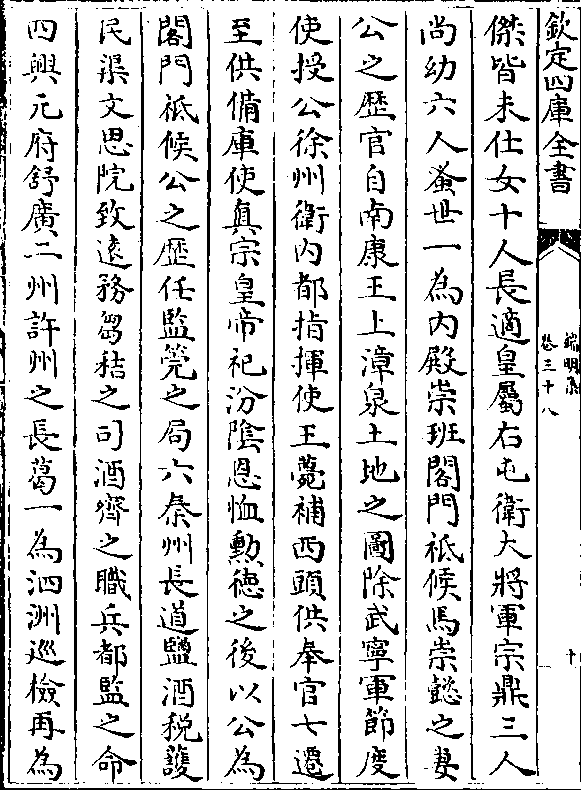 欽定四庫全書
端明集
卷三十八
十
傑皆未仕女十人長適皇屬右屯衛大將軍宗鼎三人
尚幼六人蚤世一為内殿崇班閤門祗候馬崇懿之妻
公之歴官自南康王上漳泉土地之圖除武寧軍節度
使授公徐州衛内都指揮使王薨補西頭供奉官七遷
至供備庫使真宗皇帝祀汾隂恩恤勲徳之後以公為
閤門祗候公之歴任監筦之局六秦州長道鹽酒税䕶
民渠文思院致逺務芻秸之司酒齊之職兵都監之命
四興元府舒廣二州許州之長葛一為泗洲巡檢再為